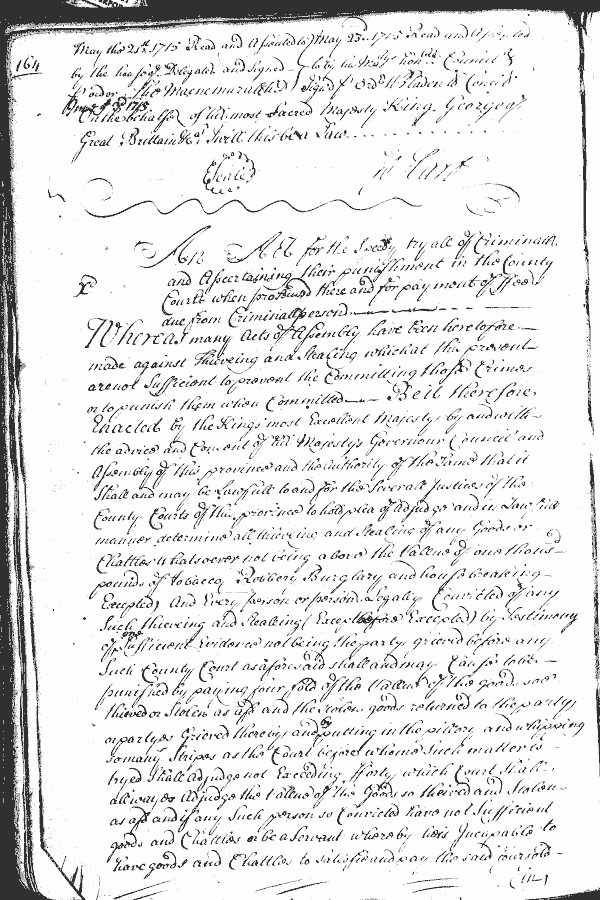 164
May this 21st 1715 Read and Assented to May 23d 1715 Read and Assented
by the house of Delegates and Signed to by the honble Council &
P order Tho Macnemara Signed P Ordr W Bladen Cl Council
June 3d 1715
On the behalfe of his most Sacred Majesty King George of
Great Brittain &ca I will this be a Law
Seale Jo Hart
An Act for the Speedy tryall of Criminalls
and Ascertaining their punishment in the County
Courts when prosecuted there and for payment of ffees
due from Criminall persons
Whereas many Acts of Assembly have been heretofore
made against Thieveing and Stealing which at this present
are not Sufficient to prevent the Committing those Crimes
or to punish them when Committed Be it therefore
Enacted by the Kings most Excellent Majesty by and with
the advice and Consent of his Majestys Governour Council and
Assembly of this province and the authority of the Same that it
Shall and may be Lawfull to and for the Severall Justices of the
County Courts of this province to hold plea of adjudge and in Lawfull
manner determine all thieving and Stealing of any Goods or
Chattles whatsoever not being above the Vallue of one thous
pounds of tobacco Robbery Burglary and house breaking
Excepted) And Every person or persons Legally Convicted of any
Such thieveing and Stealing (Except before Excepted) by Testimony
of Sufficient Evidence not being the party grieved before any
Such County Court as aforesaid shall and may Can for to be
punished by paying four fold of the Vallue of the goods soe
thieved or Stolen as afd and the Stolen goods returned to the party
or partyes Grieved thereby and putting in the pillory and whipping
so many Stripes as the Court before whome Such matter is
tryed Shall Adjudge not Exceeding fforty which Court Shall
allwayes Adjudge the Vallue of the Goods so theived and Stolen
as afd and if any Such person so Convicted have not Sufficient
goods and Chattles or be a Servant whereby he is Incapable to
have goods and Chattles to satisfie and pay the said fourfold